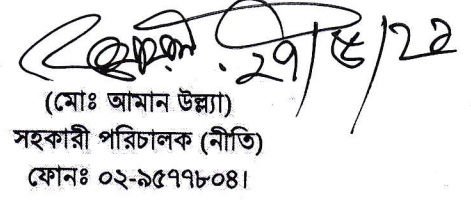 ২৭/৫/২১
(মোঃ আমান উল্ল্যা)
সহকারী পরিচালক (নীতি)
ফোনঃ ০২-৯৫৭৭৮০৪।